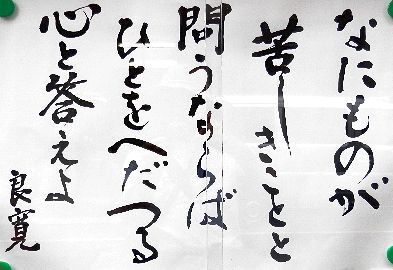 なにものが
苦しきことと
問うならば
ひとをへだつる
心と答えよ
良寛